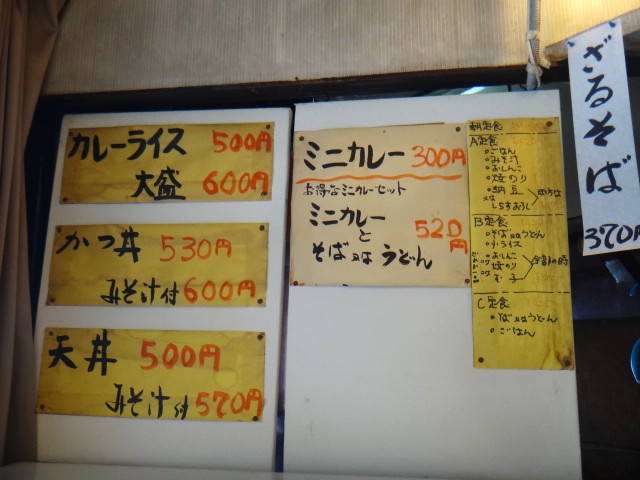 カレーライス 500円
大盛 600円
かつ丼 530円
みそ汁付 600円
天丼 500円
みそ汁付 570円
ミニカレー 300円
お得なミニカレーセット
ミニカレー
と
そば又はうどん
520円
朝定食
A定食
○ごはん
○みそ汁
○おしんこ
○焼のり
○納豆
又は
しらすおろし
B定食
○そば又はうどん
○小ライス
○おしんこ
○焼のり
C定食
○そば又はうどん
○ごはん
ざるそば
370円